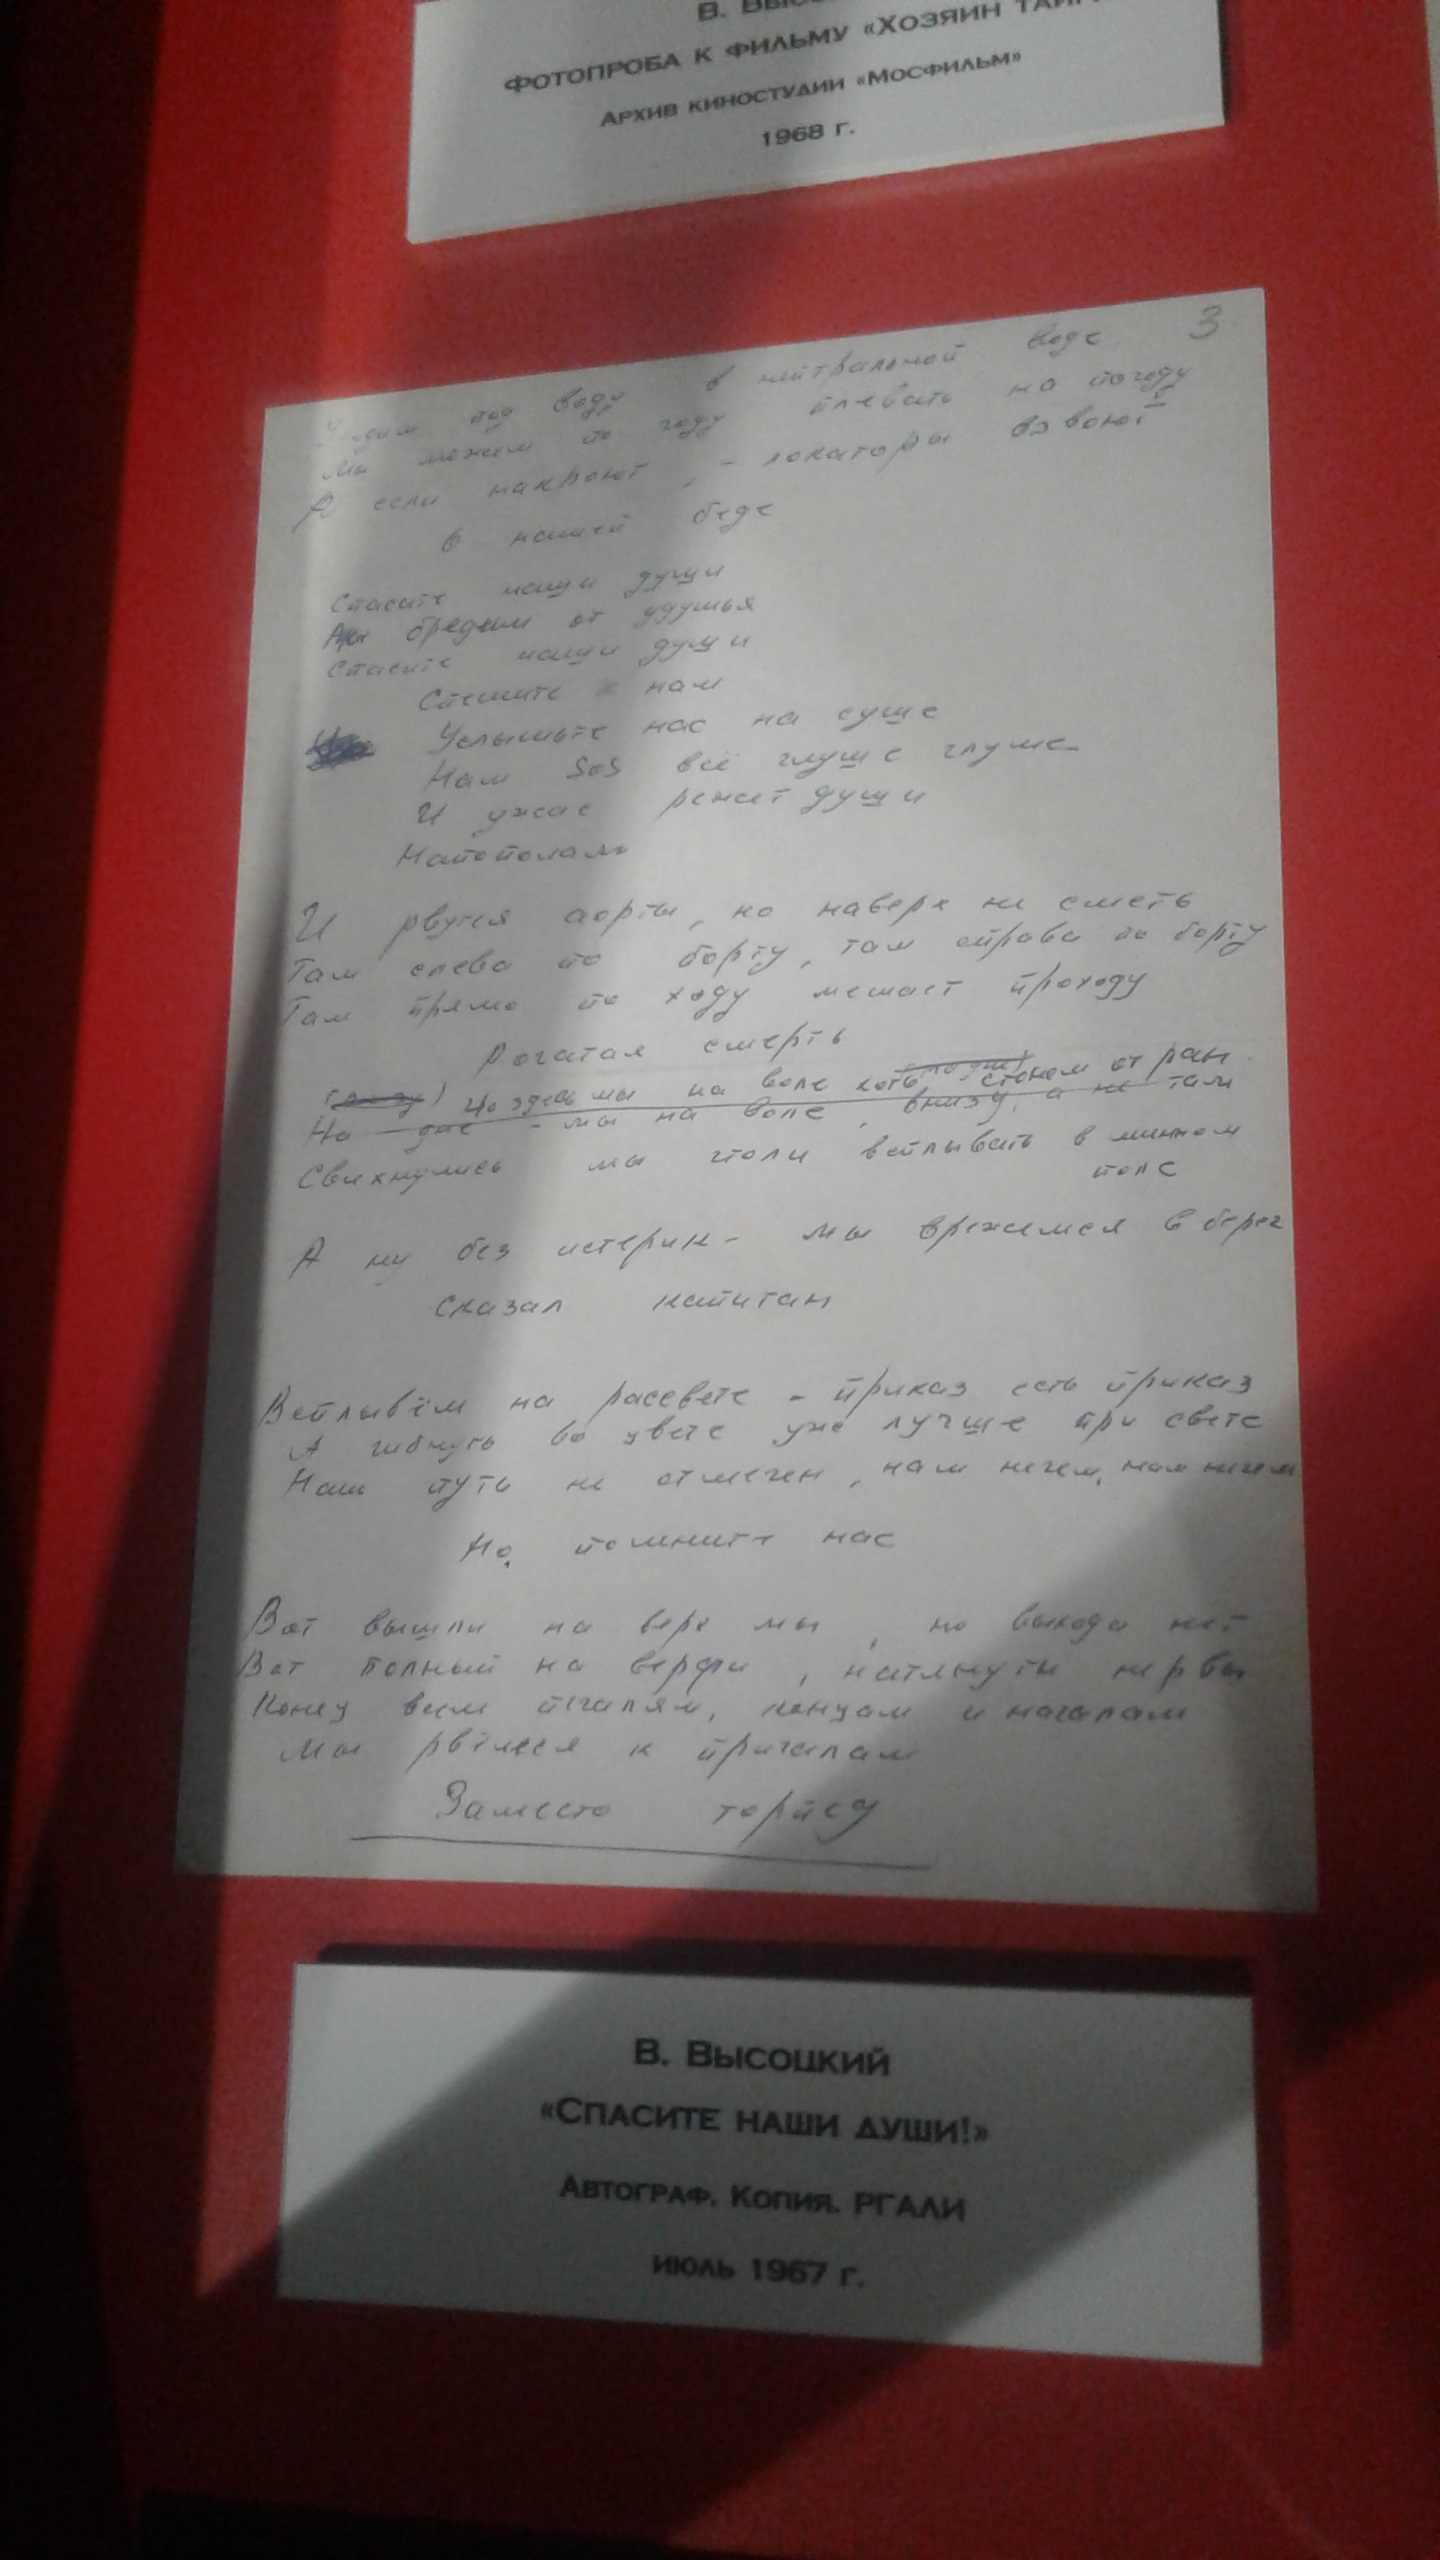 ФОТОПРОБА К ФИЛЬМУ «ХОЗЯИН
АРХИВ КИНОСТУДИИ «МОСФИЛЬМ»
1968 г.
3
Уходим под воду в нейтральной воде
Мы можем по году плевать на погоду
А если накроют, - локаторы взвоют
О нашей беде
Спасите наши души
бредим от удушья
Спасите наши души
Спешите к нам
Услышьте нас на суше
Наш SOS всё глуше глуше
И ужас режет души
Напополам
И рвутся аорты, но наверх не сметь
Там слева по борту, там справа по борту
Там прямо по ходу мешает проходу
Рогатая смерть
Но здесь мы на воле хоть стонем от ран
На дне - мы на воле, внизу, а не там
Свихнулись мы что ли всплывать в минном
поле
А ну без истерик - мы врежемся в берег
Сказал капитан
Всплывём на рассвете - приказ есть приказ
А гибнуть во цвете уже лучше при свете
Наш путь не отмечен, нам нечем, нам нечем
Но, помните нас
Вот вышли на верх мы, но выхода нет
Вот полный на верфи, натянуты нервы
Конец всем печалям, концам и началам
Мы рвёмся к причалам
Заместо торпед
В. ВЫСОЦКИЙ
«СПАСИТЕ НАШИ ДУШИ!»
АВТОГРАФ. КОПИЯ. РГАЛИ
ИЮЛЬ 1967 г.